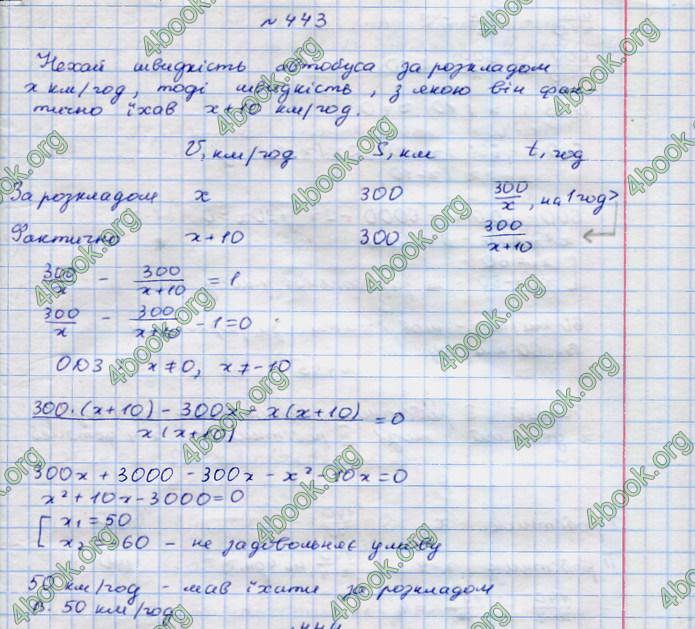 № 443
Нехай швидкість автобуса за розкладом
x км/год, тоді швидкість, з якою він фак-
тично їхав x+10 км/год.
V, км/год S, км t, год
За розкладом x 300 300/x, на 1 год >
Фактично x+10 300 300/(x+10)
300/x - 300/(x+10) = 1
300/x - 300/(x+10) - 1 = 0
ОДЗ: x≠0, x≠-10
(300·(x+10) - 300x - x(x+10))/(x(x+10)) = 0
300x + 3000 - 300x - x² - 10x = 0
x² + 10x - 3000 = 0
[ x₁ = 50
x₂ = -60 - не задовольняє умову
50 км/год - мав їхати за розкладом
В. 50 км/год
4book.org